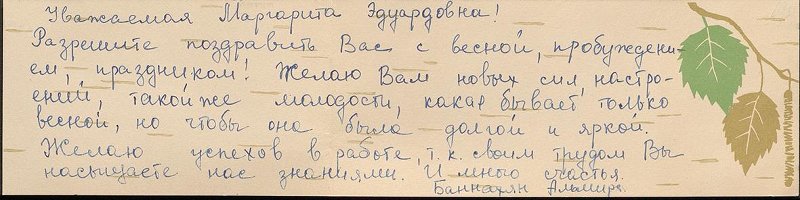 Уважаемая Маргарита Эдуардовна!
Разрешите поздравить Вас с весной, пробуждени-
ем, праздником! Желаю Вам новых сил, настро-
ений, такой же молодости, какая бывает только
весной, но чтобы она была долгой и яркой.
Желаю успехов в работе, т.к. своим трудом Вы
насыщаете нас знаниями. И много счастья.
Альмира